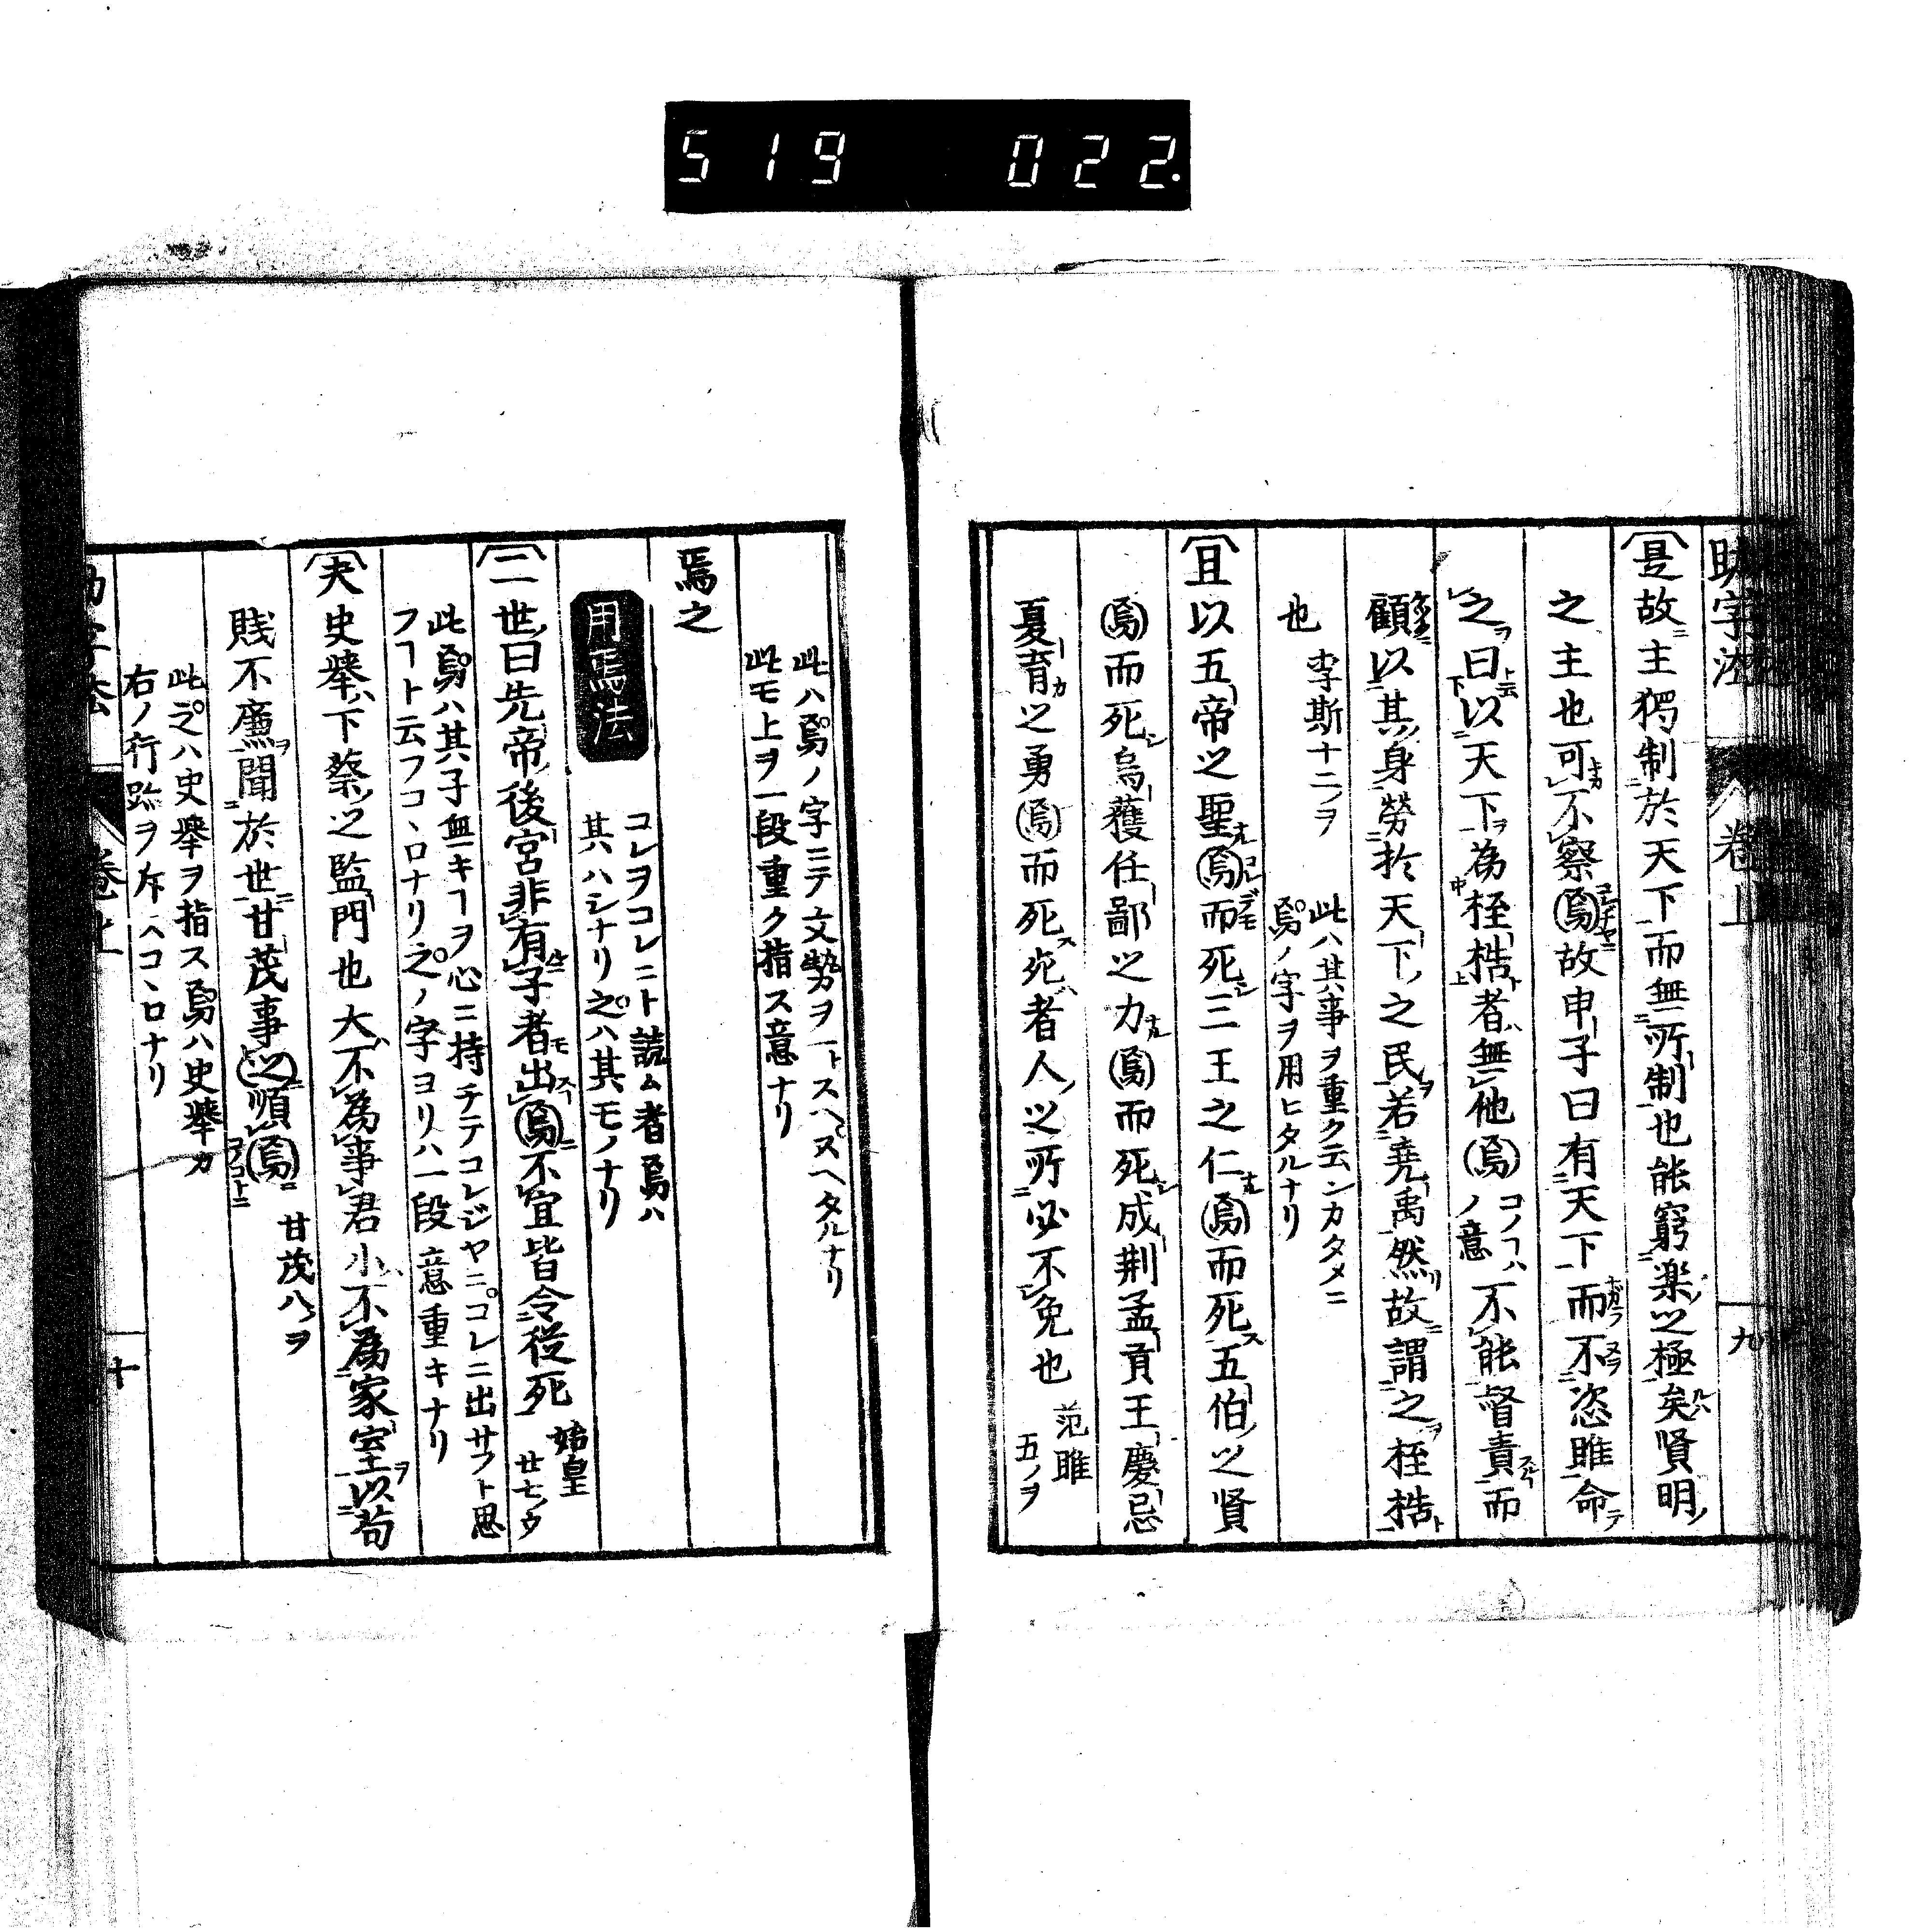 519 022.
助字法 卷上 九
是故主獨制於天下而無所制也能窮楽之極矣賢明
之主也可不察焉故申子曰有天下而不恣睢命
之曰以天下為桎梏者無他焉コノコハノ意不能督責而
顧以其身勞於天下之民若堯禹然故謂之桎梏
也 李斯十二ノヲ 此ハ其事ヲ重ク云ンカタメニ
焉ノ字ヲ用ヒタルナリ
且以五帝之聖焉而死三王之仁焉而死五伯之賢
焉而死烏獲任鄙之力焉而死成荆孟賁王慶忌
夏育之勇焉而死死者人之所必不免也 范雎五ノヲ
此ハ焉ノ字ニテ文勢ヲ一トスヘヌヘタルナリ
此モ上ヲ一段重ク指ス意ナリ
焉之
用焉法 コレヲコレニト読ム者焉ハ
其ハシナリ之ハ其モノナリ
二世曰先帝後宮非有子者出焉不宜皆令從死 始皇廿七ノウ
此焉ハ其子無キヿヲ心ニ持チテコレジヤニコレニ出サフト思
フヿト云フコヽロナリ之ノ字ヨリハ一段意重キナリ
夫史舉下蔡之監門也大不為事君小不為家室以苟
賎不廉聞於世甘茂事之順焉 甘茂八ノヲ
此之ハ史舉ヲ指ス焉ハ史舉カ
右ノ行跡ヲ斥ヘコヽロナリ
助字法 卷上 十